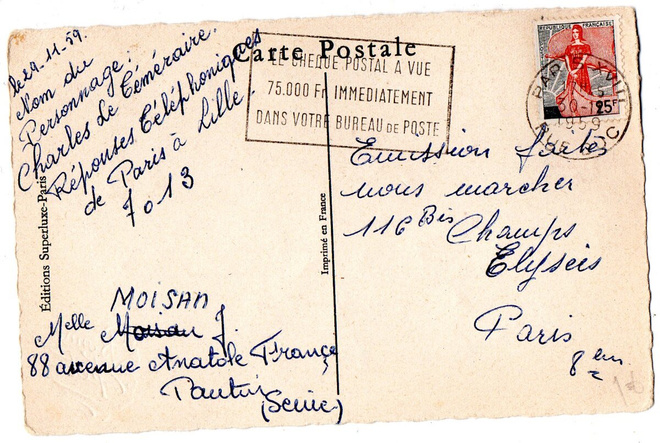 le 29-11-59.
Nom du
Personnage.
Charles Le Téméraire.
Réponses Téléphoniques
de Paris à Lille.
7013
MOISAN
Melle Moisan J.
88 avenue Anatole France
Pantin
(Seine)
Éditions Superluxe-Paris
Imprimé en France
Carte Postale
LE CHEQUE POSTAL A VUE
75.000 Fr IMMEDIATEMENT
DANS VOTRE BUREAU DE POSTE
REPUBLIQUE FRANÇAISE
25F
PARIS XVII
1959
Emission faites
nous marcher
116 Bis Champs
Elysées
Paris
8 em